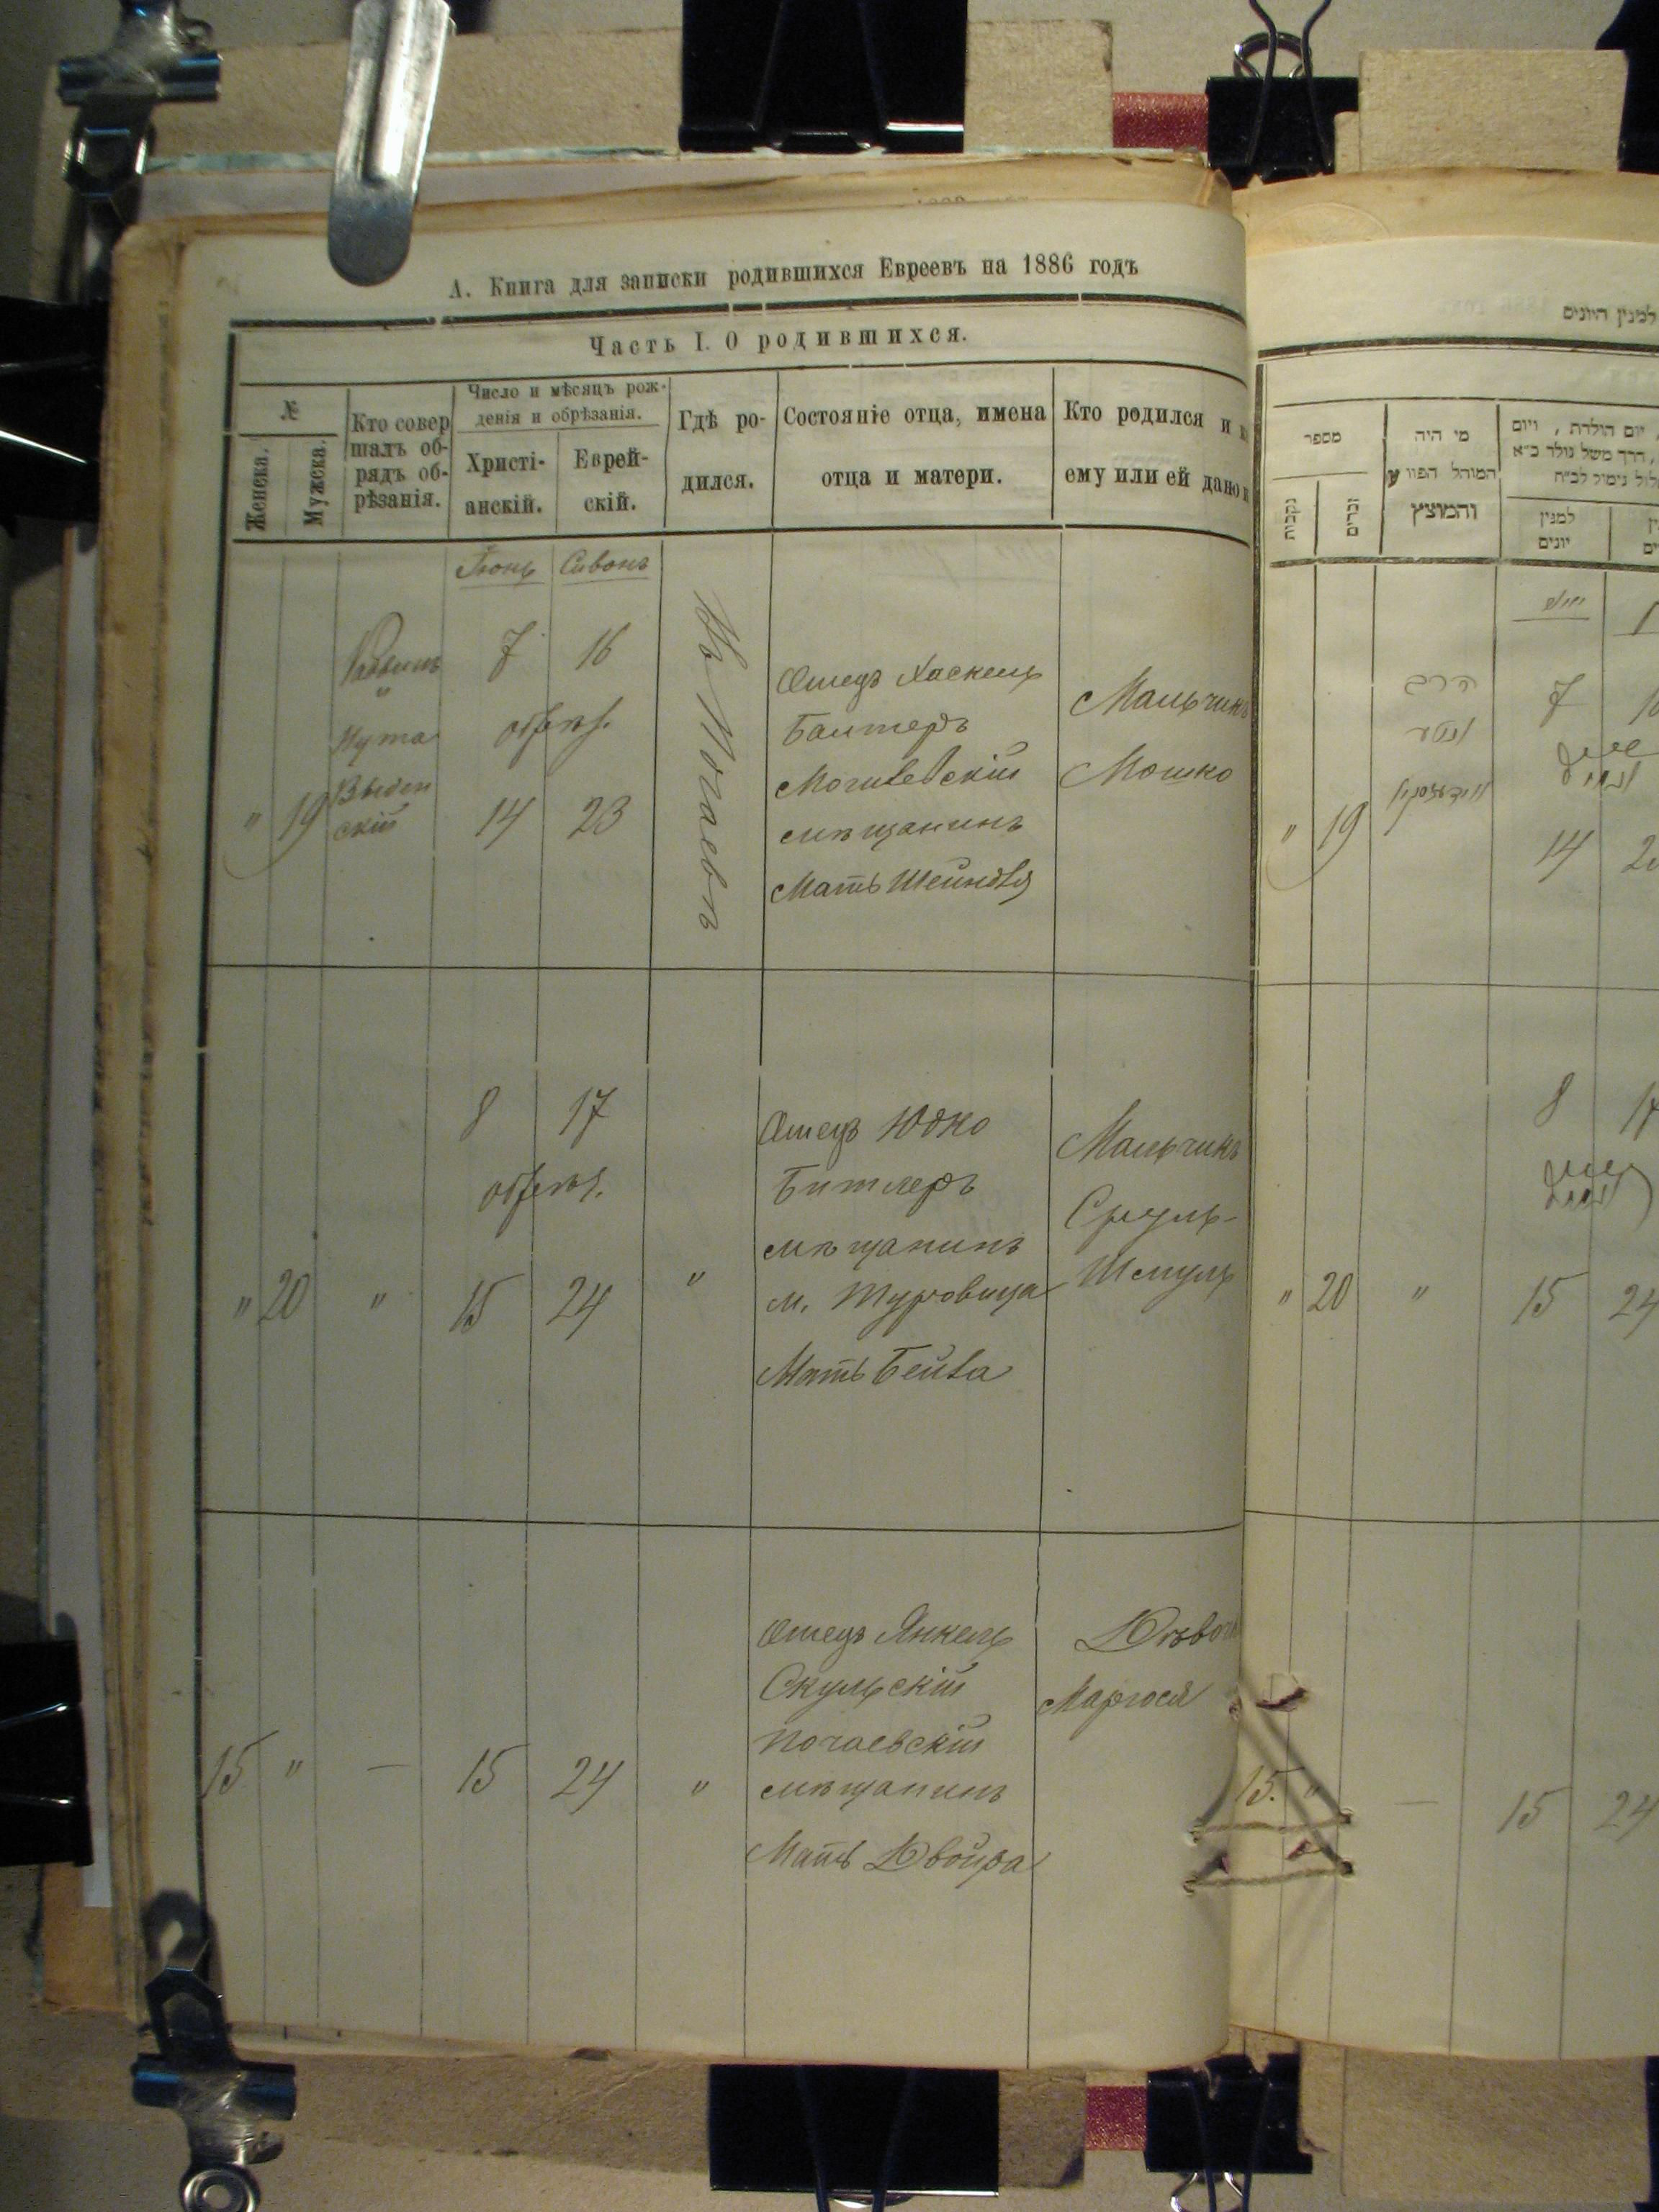 А. Книга для записки родившихся Евреевъ на 1886 годъ
Часть I. О родившихся.
№
Женска.
Мужска.
Кто совер
шалъ об-
рядъ об-
рѣзанія.
Число и мѣсяцъ рож-
денія и обрѣзанія.
Христі-
анскій.
Еврей-
скій.
Гдѣ ро-
дился.
Состояніе отца, имена
отца и матери.
Кто родился и
ему или ей дано
Іюнь
Сивонъ
" 19
Раввинъ
"
Нута
7 16
обрѣз.
14 23
Въ Почаевѣ
Отецъ Хаскель
Могилевскій
мѣщанинъ
Мать Шейндля
Мальчикъ
Мошко
" 20 "
8 17
обрѣз.
15 24
"
Отецъ Юдко
Битлеръ
мѣщанинъ
м.
Мать Бейла
Мальчикъ
Сруль-
Шмуль
15 " —
15 24
"
Отецъ Янкель
Скульскій
Почаевскій
мѣщанинъ
Мать Двойра
למנין היונים
מספר
נקבות
זכרים
מי היה
המוהל הפורע
והמוצץ
יום הולדת , ויום
למנין
יונים
יוני
הרב
נוטע
" 19
7
14
" 20 "
8 17
15 24
15. " —
15 24